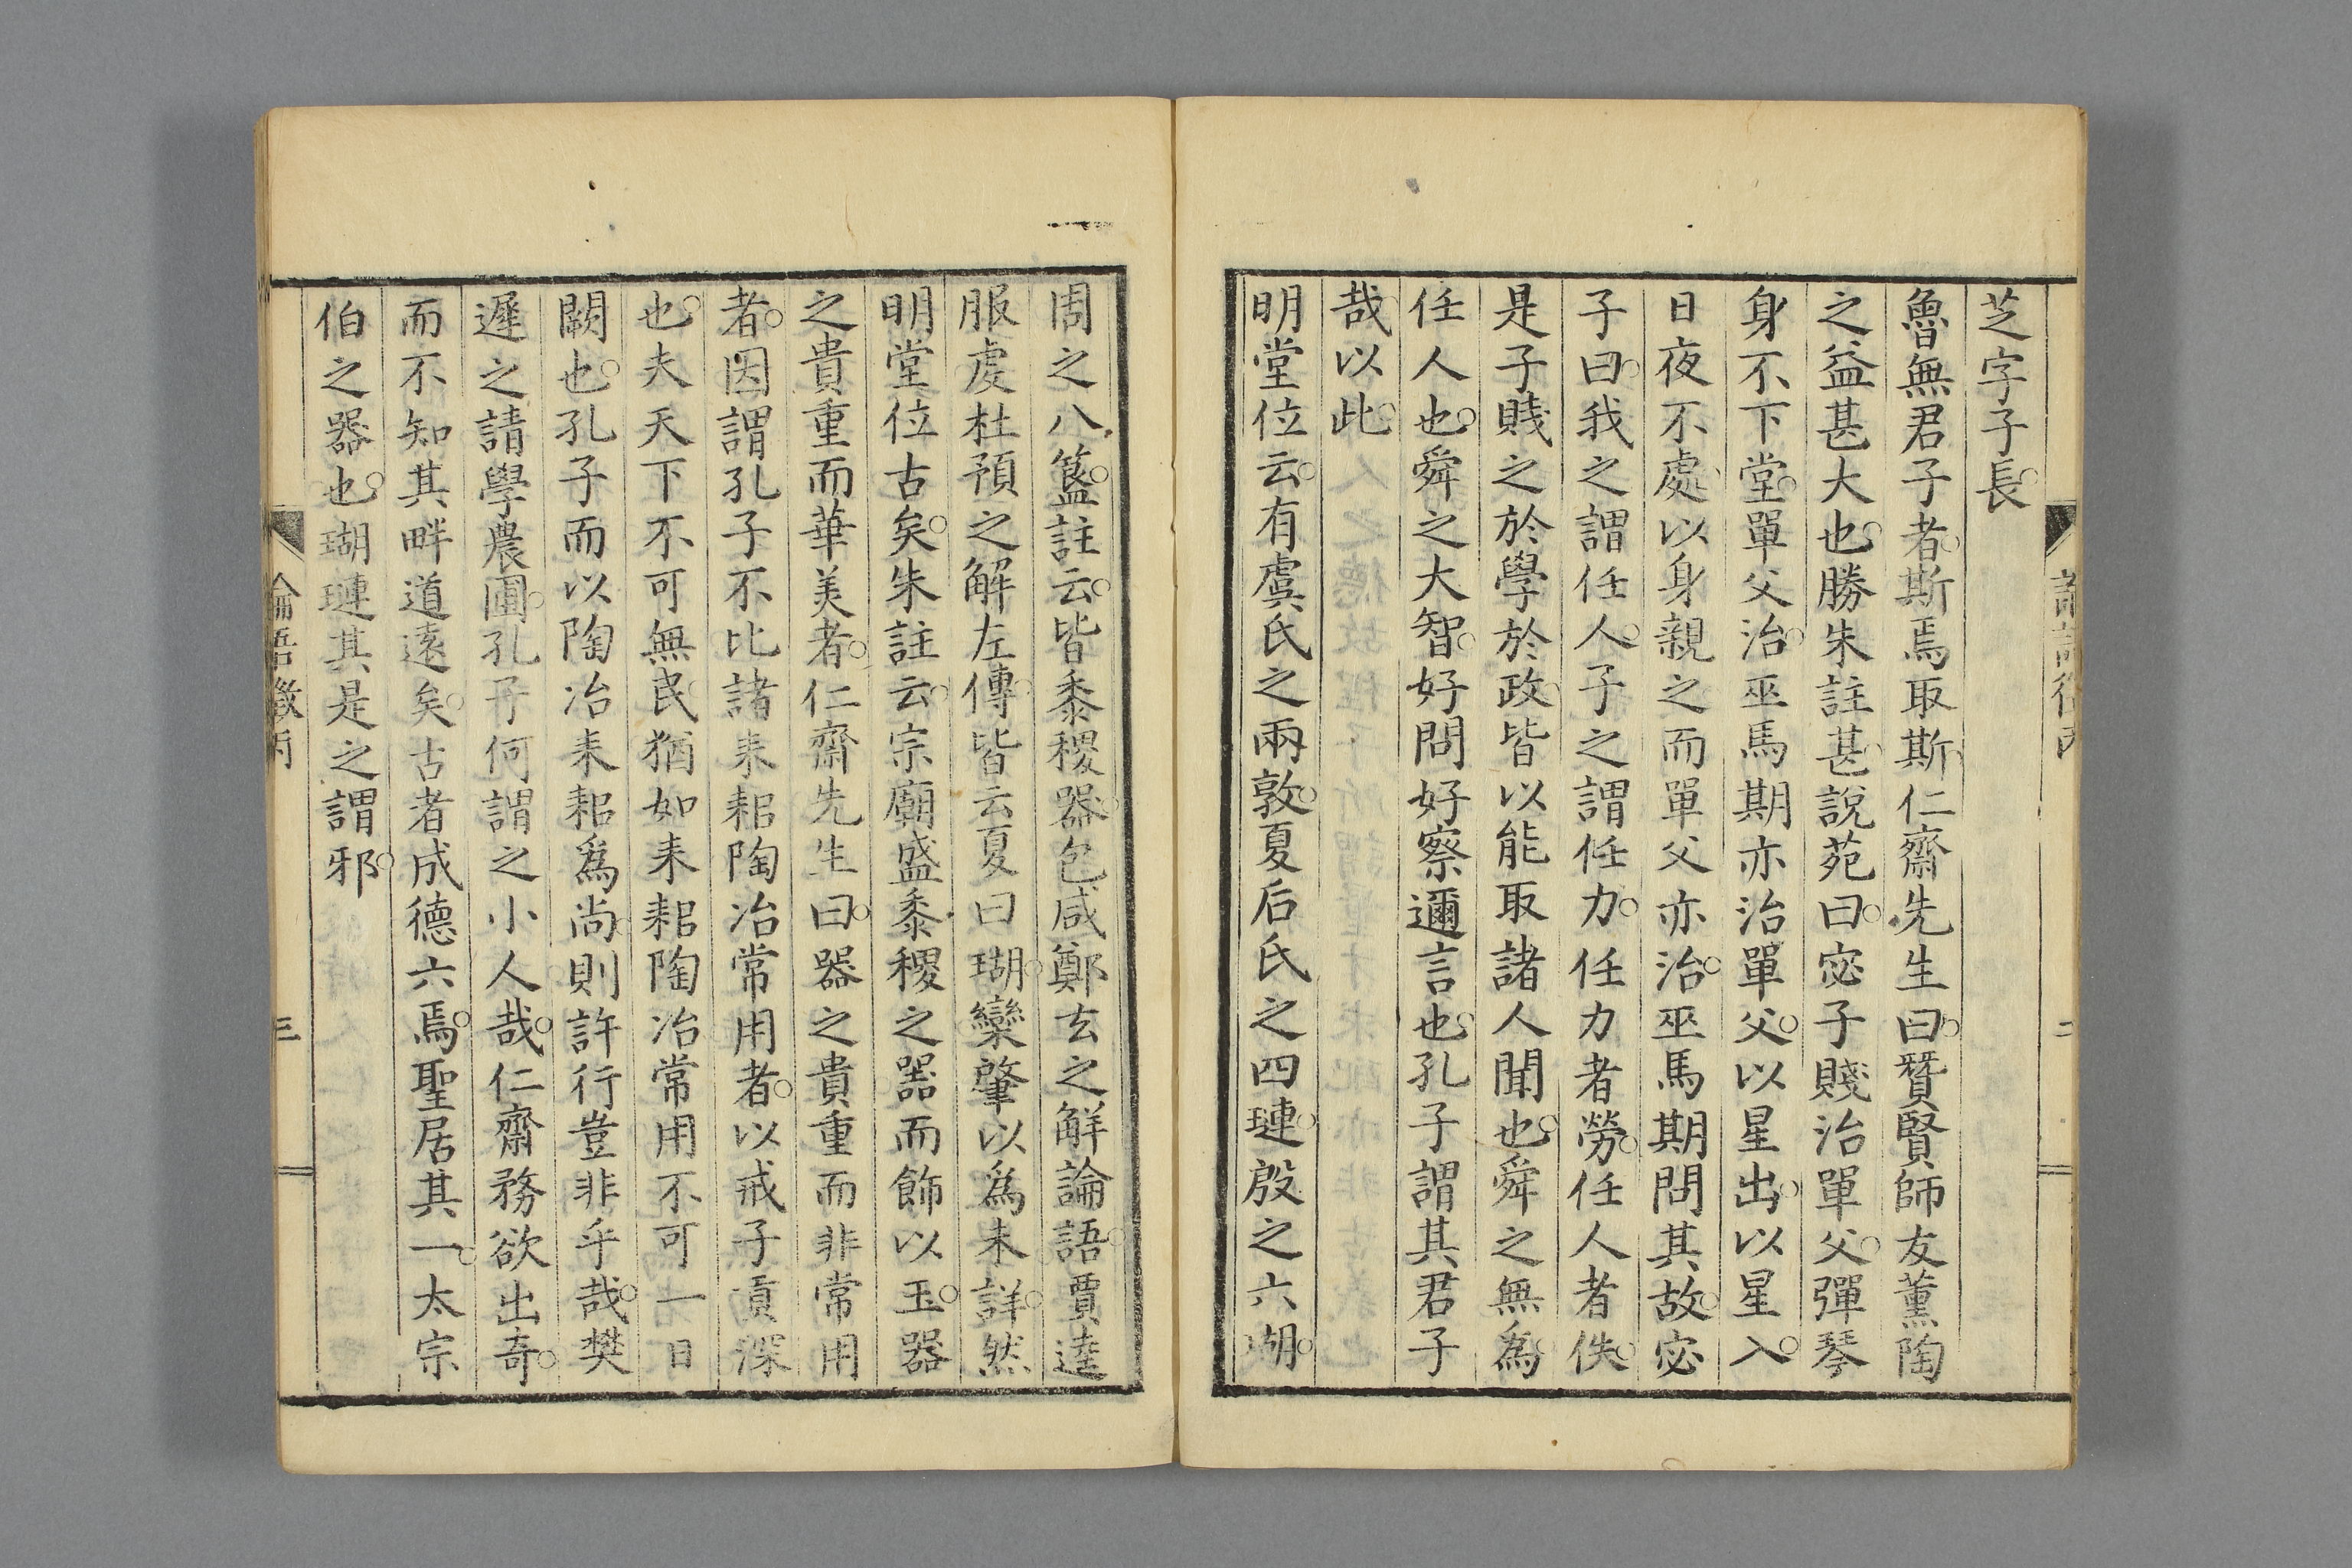 芝字子長
魯無君子者斯焉取斯仁齋先生曰贒賢師友薰陶
之益甚大也勝朱註甚說苑曰宓子賤治單父彈琴
身不下堂單父治巫馬期亦治單父以星出以星入
日夜不處以身親之而單父亦治巫馬期問其故宓
子曰我之謂任人子之謂任力任力者勞任人者佚
是子賤之於學於政皆以能取諸人聞也舜之無為
任人也舜之大智好問好察邇言也孔子謂其君子
哉以此
明堂位云有虞氏之兩敦夏后氏之四璉殷之六瑚
周之八簋註云皆黍稷器包咸鄭玄之解論語賈逵
服虔杜預之解左傳皆云夏曰瑚欒肇以爲未詳然
明堂位古矣朱註云宗廟盛黍稷之器而飾以玉器
之貴重而華美者仁齋先生曰器之貴重而非常用
者因謂孔子不比諸耒耜陶冶常用者以戒子貢深
也夫天下不可無民猶如耒耜陶冶常用不可一日
闕也孔子而以陶冶耒耜爲尚則許行豈非乎哉樊
遲之請學農圃孔子何謂之小人哉仁齋務欲出奇
而不知其畔道遠矣古者成德六焉聖居其一太宗
伯之器也瑚璉其是之謂邪
論語徵丙
三